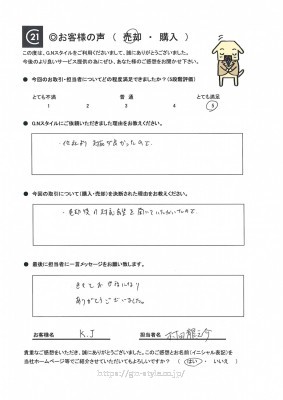 21 ◎お客様の声 ( 売却 ・ 購入 )
この度は、G.Nスタイルをご利用くださいまして、誠にありがとうございました。
今後のより良いサービス提供の為にぜひ、あなた様のご感想をお聞かせ下さい。
● 今回のお取引・担当者についてどの程度満足できましたか？(5段階評価)
とても不満 普 通 とても満足
1 2 3 4 5
● G.Nスタイルにご依頼いただきました理由をお教えください。
・他社より 対応が良かったので、
● 今回の取引について(購入・売却)を決断された理由をお教えください。
・売却後の対応
を聞いていただいたので、
● 最後に担当者に一言メッセージをお願い致します。
とてもお世話になり
ありがとうございました。
お客様名 K.J 担当者名
貴重なご感想をいただき、誠にありがとうございました。このご感想とお名前(イニシャル表記)を
当社ホームページ等でご紹介させていただいてもよろしいですか？ ( はい ・ いいえ )
https://gn-style.co.jp